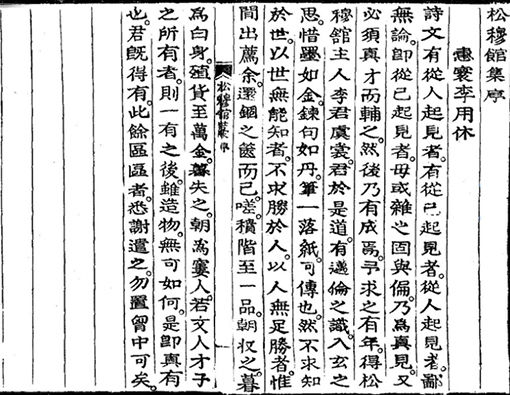 松穆館集序
惠寰李用休
詩文有從人起見者。有從己起見者。從人起見者。鄙
無論。卽從己起見者。毋或雜之固與偏。乃爲眞見。又
必須眞才而輔之。然後乃有成焉。予求之有年。得松
穆館主人李君虞裳。君於是道。有邁倫之識。入玄之
思。惜墨如金。鍊句如丹。筆一落紙。可傳也。然不求知
於世。以世無能知者。不求勝於人。以人無足勝者。惟
間出薦余。還錮之篋而已。嗟。積階至一品。朝收之。暮
松穆館集 序 一
爲白身。殖貨至萬金。暮失之。朝爲窶人。若文人才子
之所有者。則一有之後。雖造物。無可如何。是卽眞有
也。君旣得有。此餘區區者。悉謝遣之。勿置胷中可矣。